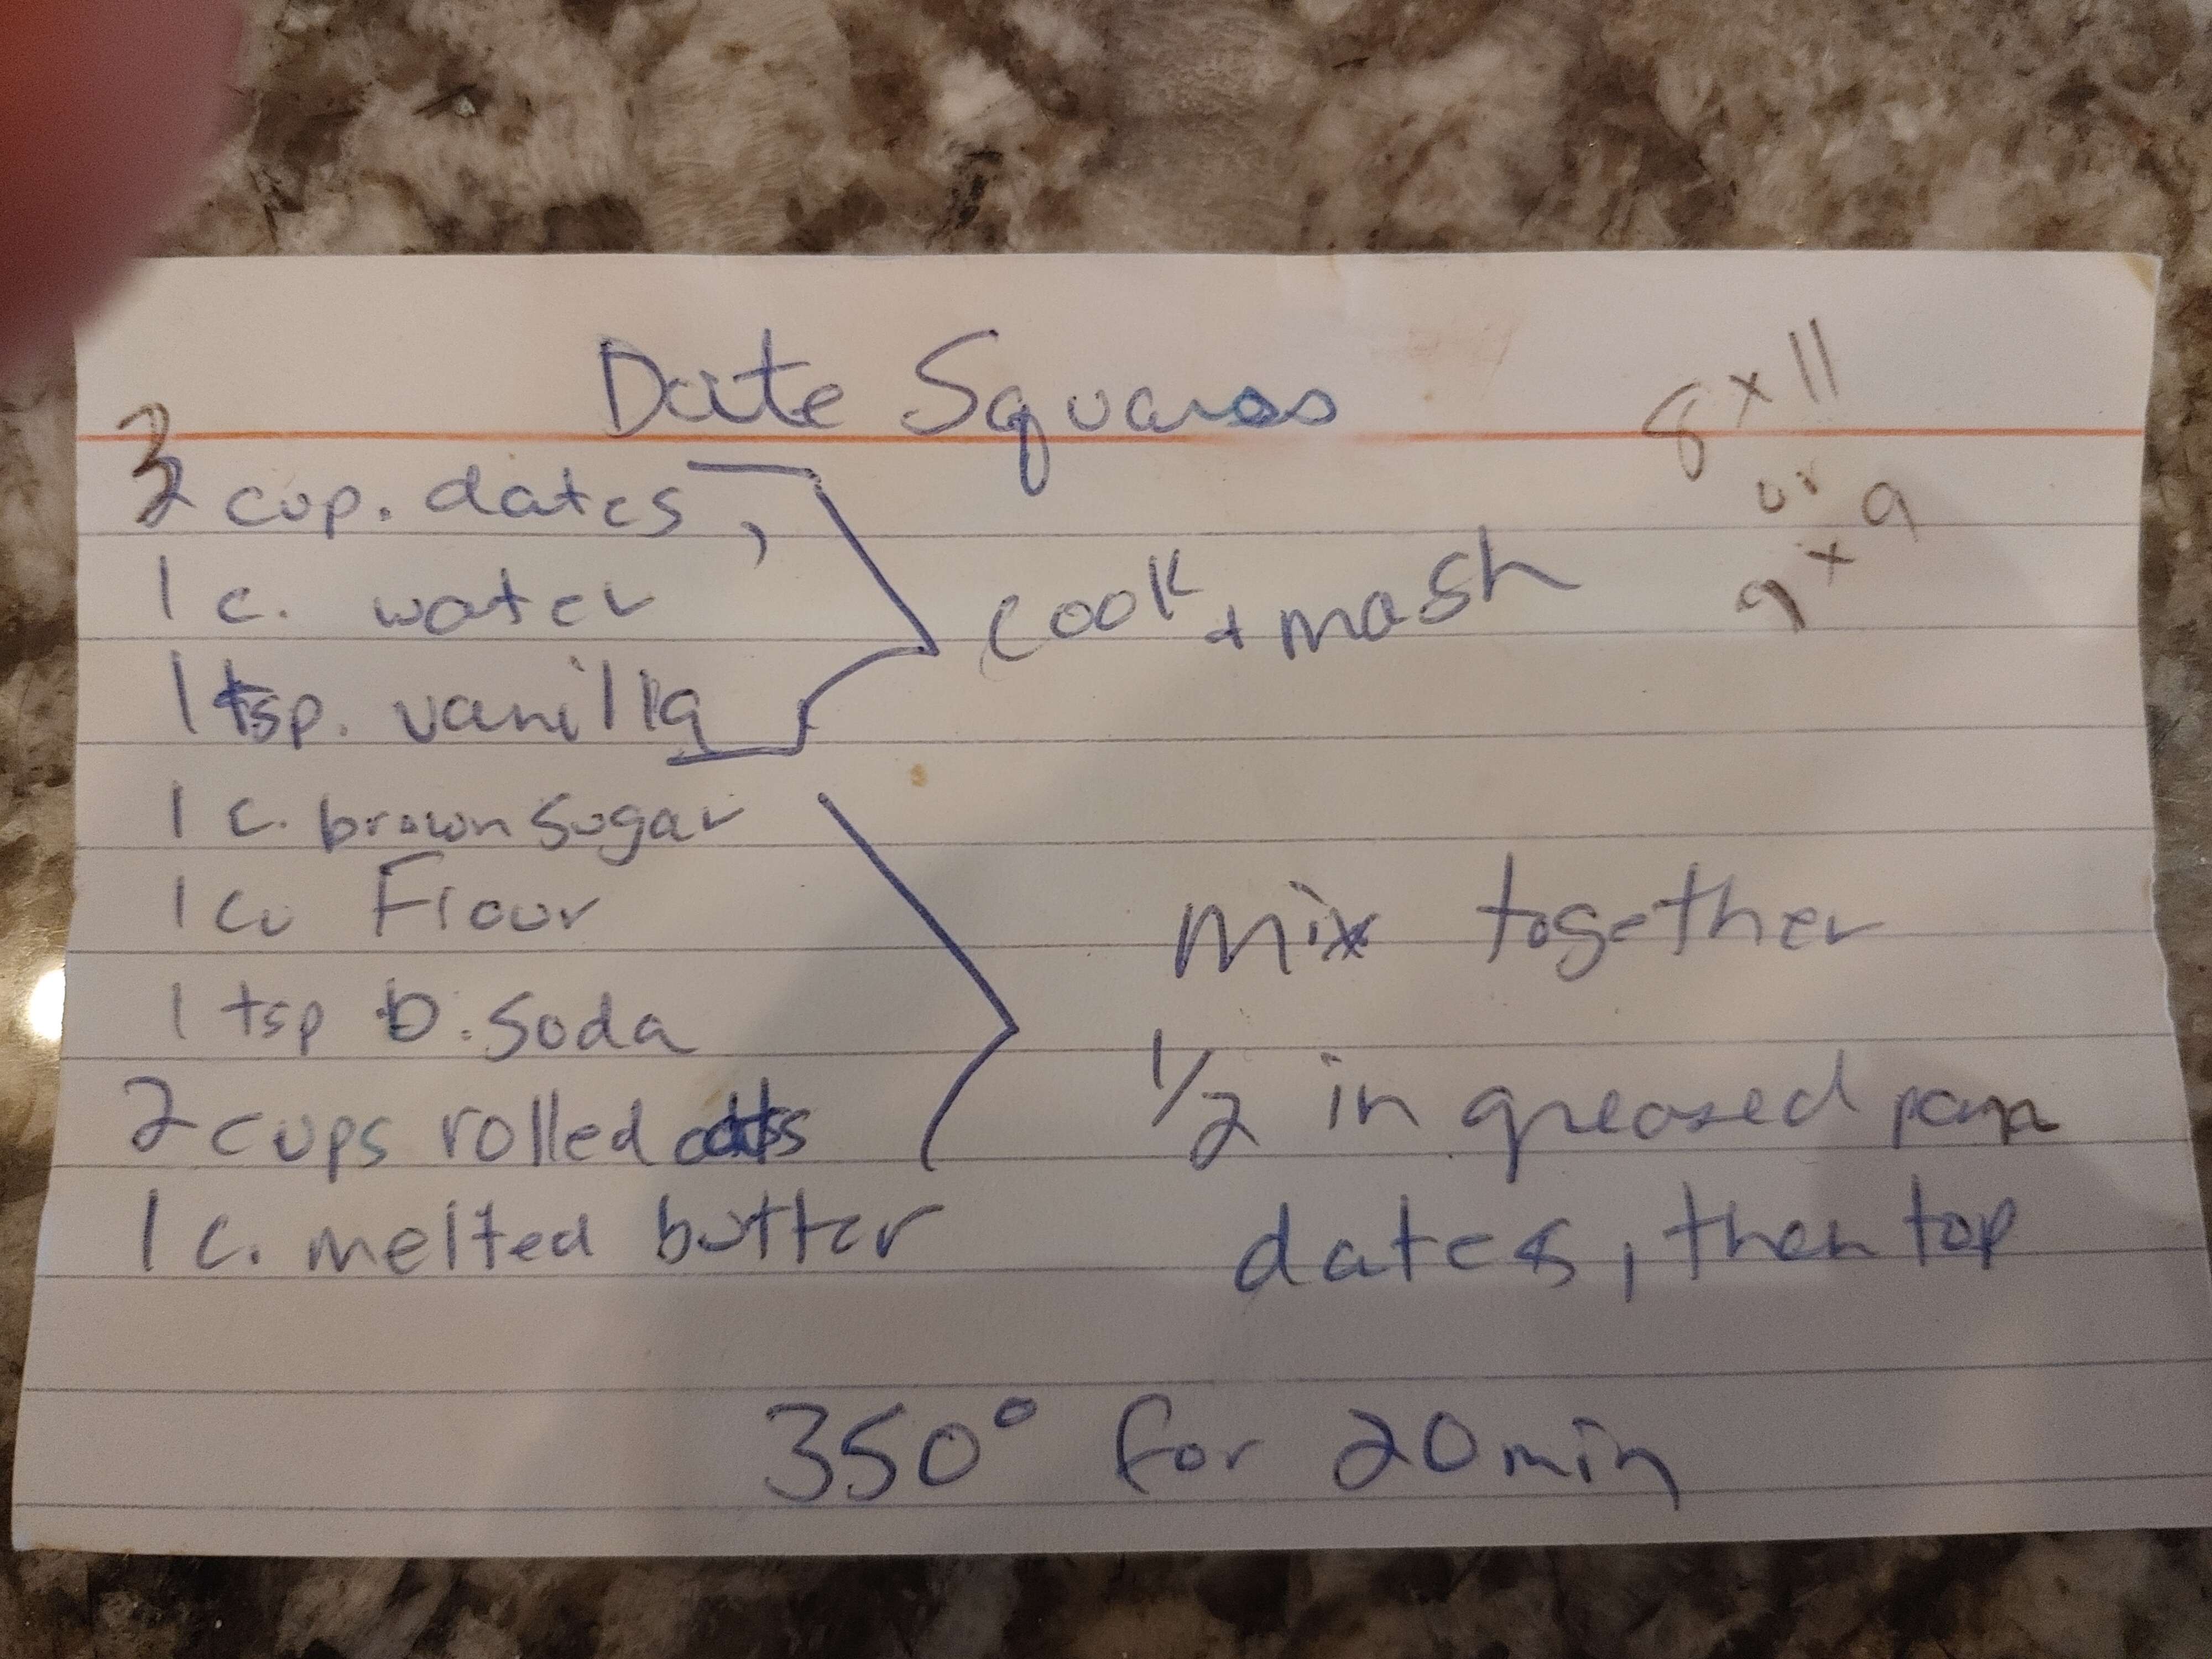 Date Squares
8 x 11
or
9 x 9
3
2 cup. dates,
1 c. water
1 tsp. vanilla
cook + mash
1 c. brown sugar
1 c. Flour
1 tsp b. soda
2 cups rolled oats
1 c. melted butter
mix together
1/2 in greased pan
dates, then top
350° for 20 min